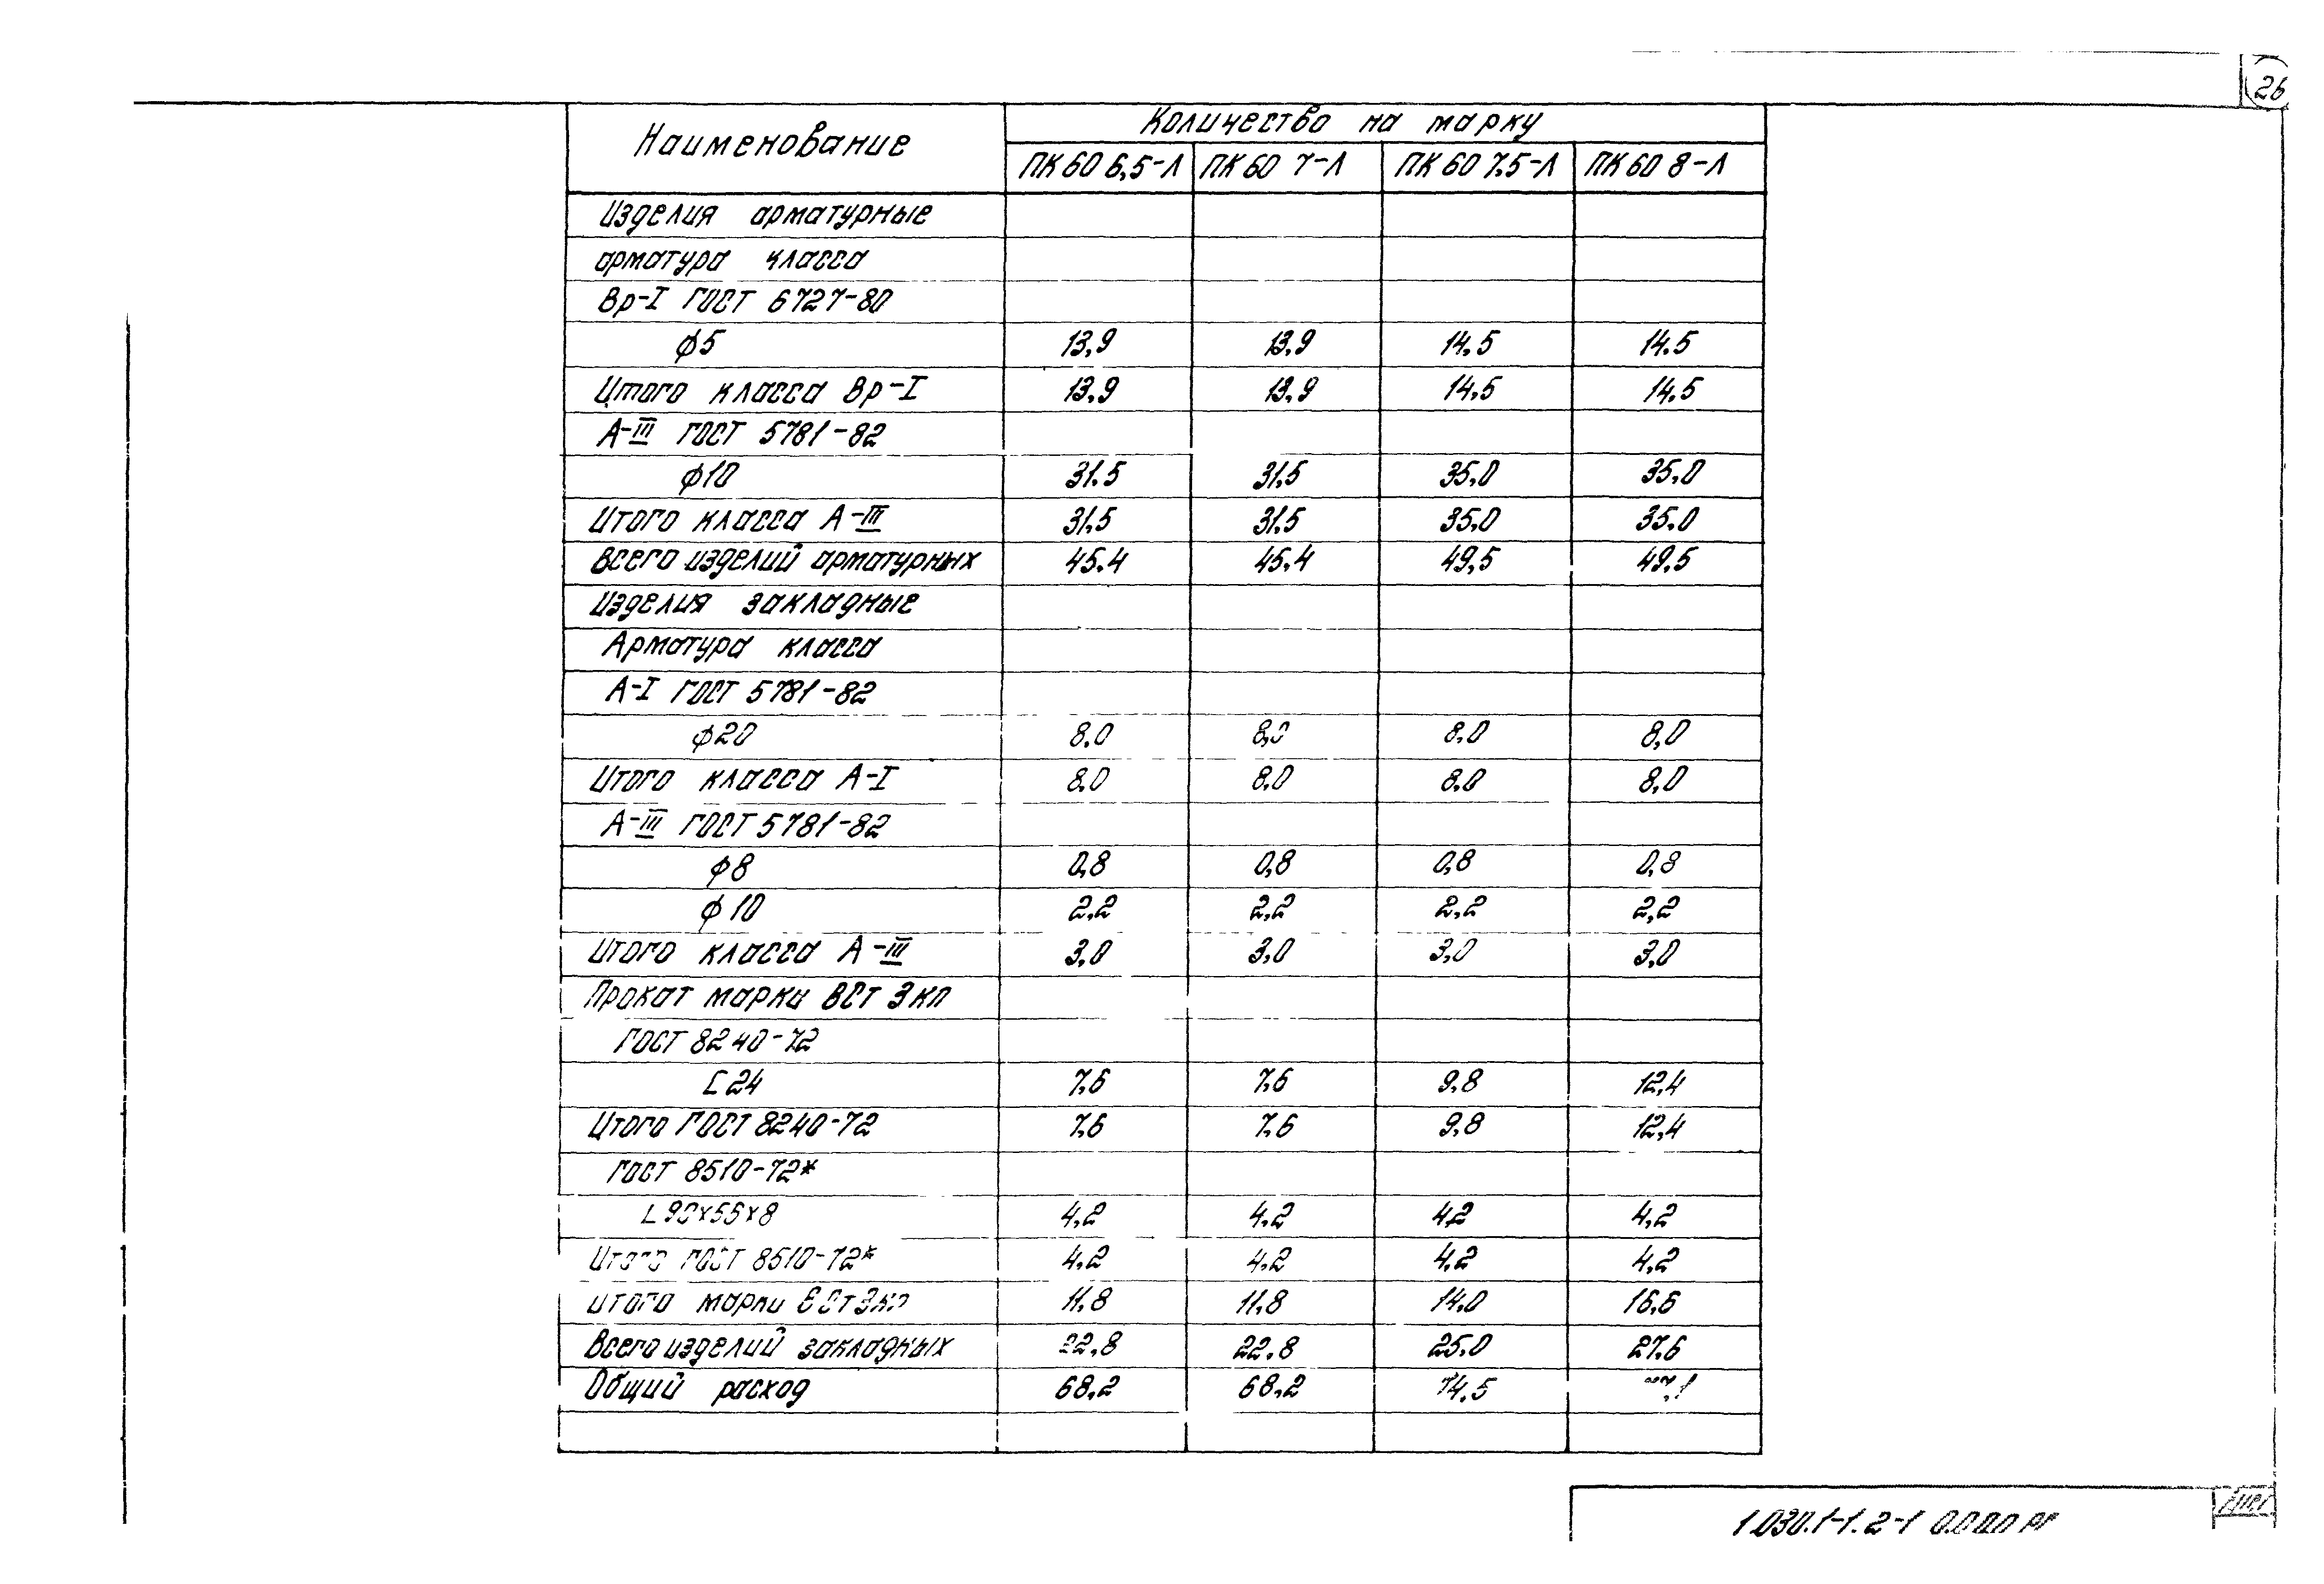 26
Наименование
Количество на марку
ПК 60 6,5-Л ПК 60 7-Л ПК 60 7,5-Л ПК 60 8-Л
Изделия арматурные
арматура класса
Вр-I ГОСТ 6727-80
ϕ5 13,9 13,9 14,5 14.5
Итого класса Вр-I 13,9 13,9 14,5 14,5
А-III ГОСТ 5781-82
ϕ10 31.5 31,5 35,0 35,0
Итого класса А-III 31,5 31,5 35,0 35,0
Всего изделий арматурных 45.4 45,4 49,5 49,5
Изделия закладные
Арматура класса
А-I ГОСТ 5781-82
ϕ20 8,0 8,0 8,0 8,0
Итого класса А-I 8,0 8,0 8,0 8,0
А-III ГОСТ 5781-82
ϕ8 0,8 0,8 0,8 0,8
ϕ10 2,2 2,2 2,2 2,2
Итого класса А-III 3,0 3,0 3,0 3,0
Прокат марки ВСт 3 кп
ГОСТ 8240-72
[24 7,6 7,6 9,8 12,4
Итого ГОСТ 8240-72 7,6 7,6 9,8 12,4
ГОСТ 8510-72*
L 90×56×8 4,2 4,2 4,2 4,2
Итого ГОСТ 8510-72* 4,2 4,2 4,2 4,2
итого марки ВСт3кп 11,8 11,8 14,0 16,6
Всего изделий закладных 22,8 22,8 25,0 27,6
Общий расход 68,2 68,2 74,5
1.030.1-1.2-1 0.0.0.0 РГ
Лист